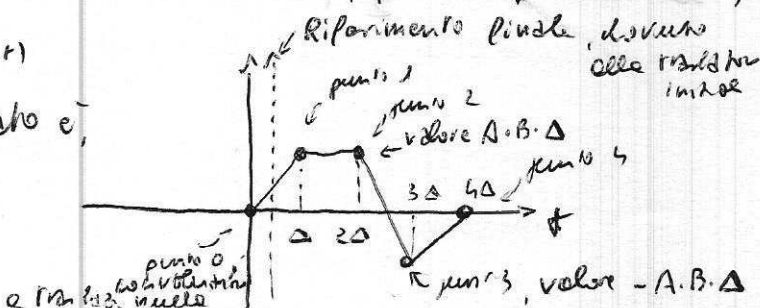 Riferimento finale, dovuto
alla traslazione
iniziale
t)
punto 1
punto 2
valore A·B·Δ
punto 4
3Δ 4Δ
Δ 2Δ
t
punto 0
convoluzione
nulla
punto 3, valore -A·B·Δ